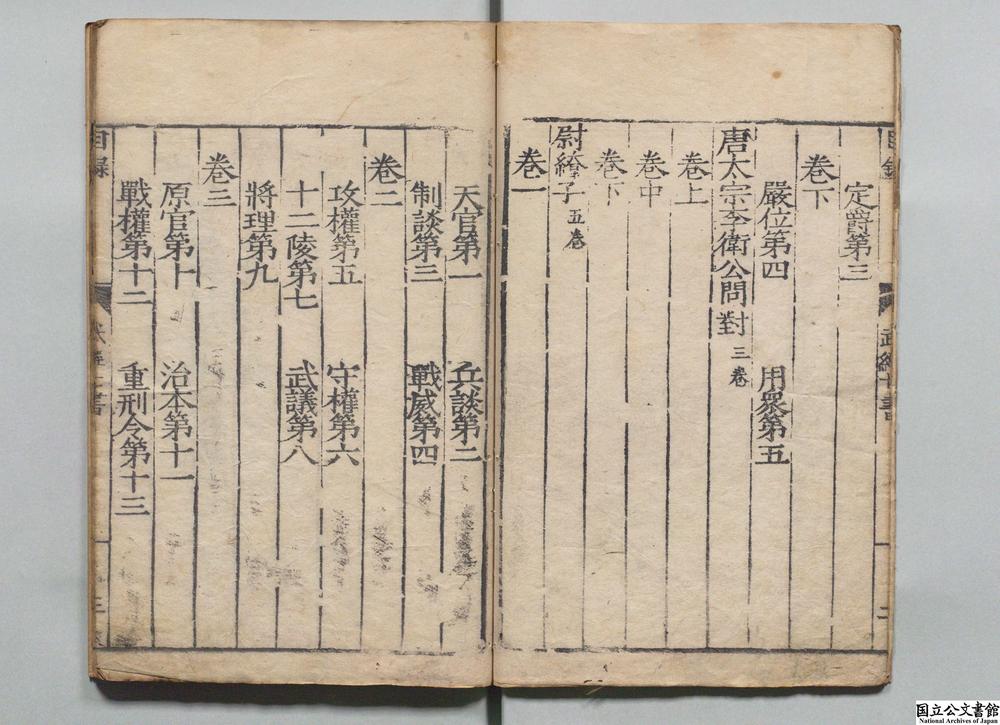 定爵第三
卷下
嚴位第四 用衆第五
唐太宗李衛公問對 三卷
卷上
卷中
卷下
尉繚子 五卷
卷一
天官第一 兵談第二
制談第三 戰威第四
卷二
攻權第五 守權第六
十二陵第七 武議第八
將理第九
卷三
原官第十 治本第十一
戰權第十二 重刑令第十三
目錄
三
目錄
武經七書
二
国立公文書館
National Archives of Japan